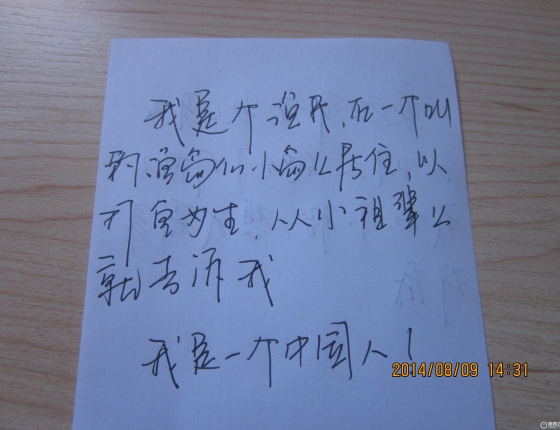 我是个渔民,在一个叫
钓渔岛的小岛上居住,以
打鱼为生,从小祖辈上
就告诉我
我是一个中国人!
2014/08/09 14:31